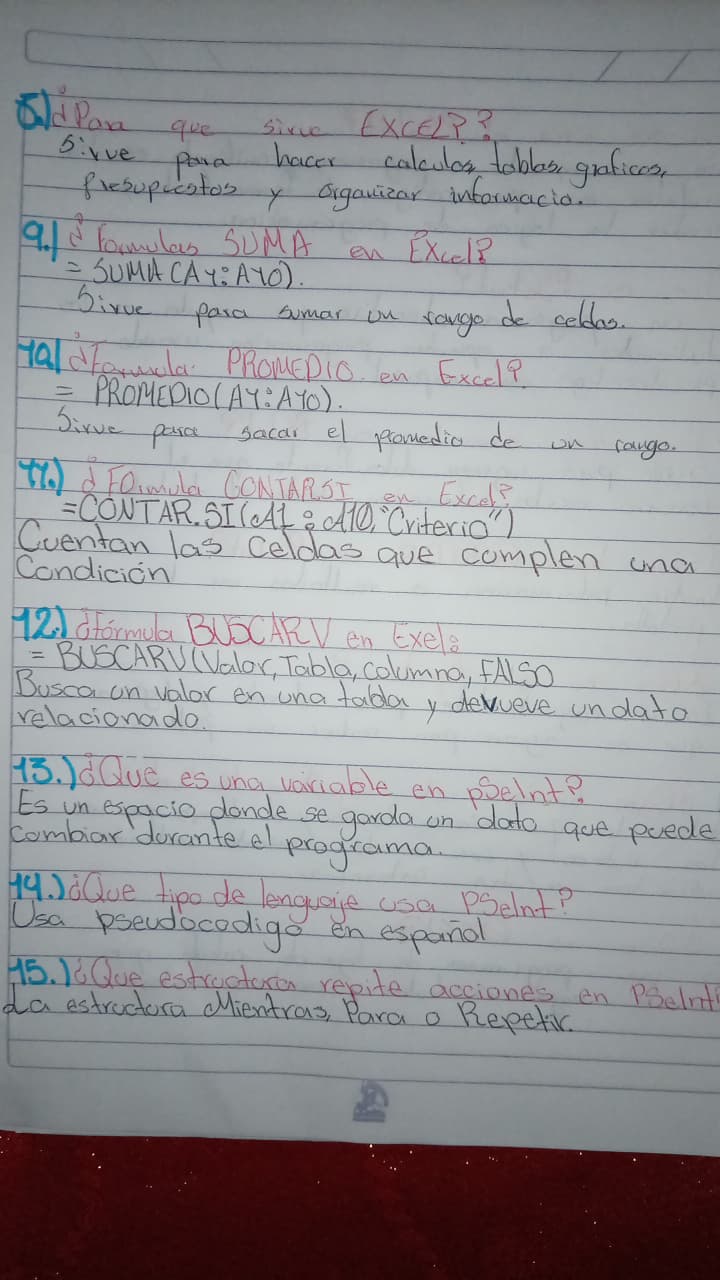 8.) ¿Para que sirve EXCEL??
Sirve para hacer calculos, tablas, graficos,
Presupuestos y organizar informacio.
9.) ¿Formulas SUMA en Excel?
= SUMA(A1:A10).
Sirve para sumar un rango de celdas.
10) ¿Formula PROMEDIO en Excel?
= PROMEDIO(A1:A10).
Sirve para sacar el promedio de un rango.
11.) ¿FOrmula CONTARSI en Excel?
=CONTAR.SI(A1:A10,"Criterio")
Cuentan las celdas que complen una
Condición
12.) ¿fórmula BUSCARV en Exel:
= BUSCARV(Valor, Tabla, columna, FALSO
Busca un valor en una tabla y devueve un dato
relacionado.
13.) ¿Que es una variable en pSeInt?
Es un espacio donde se garda un dato que puede
combiar durante el programa.
14.) ¿Que tipo de lenguaje usa PSeInt?
Usa pseudocodigo en español
15.) ¿Que estructura repite acciones en PSeInt?
La estructura Mientras, Para o Repetir.